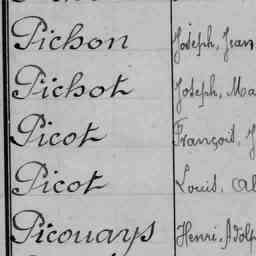 Pichon Joseph, Jean
Pichot Joseph, Ma
Picot François, J
Picot Louis, Al
Picouays Henri, Adolp